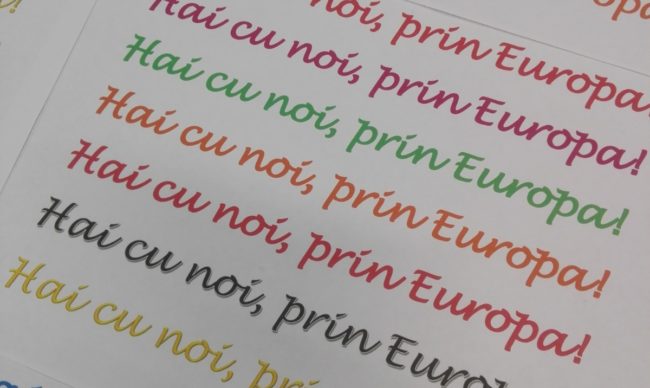 noi, prin Europa!
Hai cu noi, prin Europa!
Hai cu noi, prin Europa!
Hai cu noi, prin Europa!
Hai cu noi, prin Europa!
Hai cu noi, prin Europa
Hai cu noi, prin